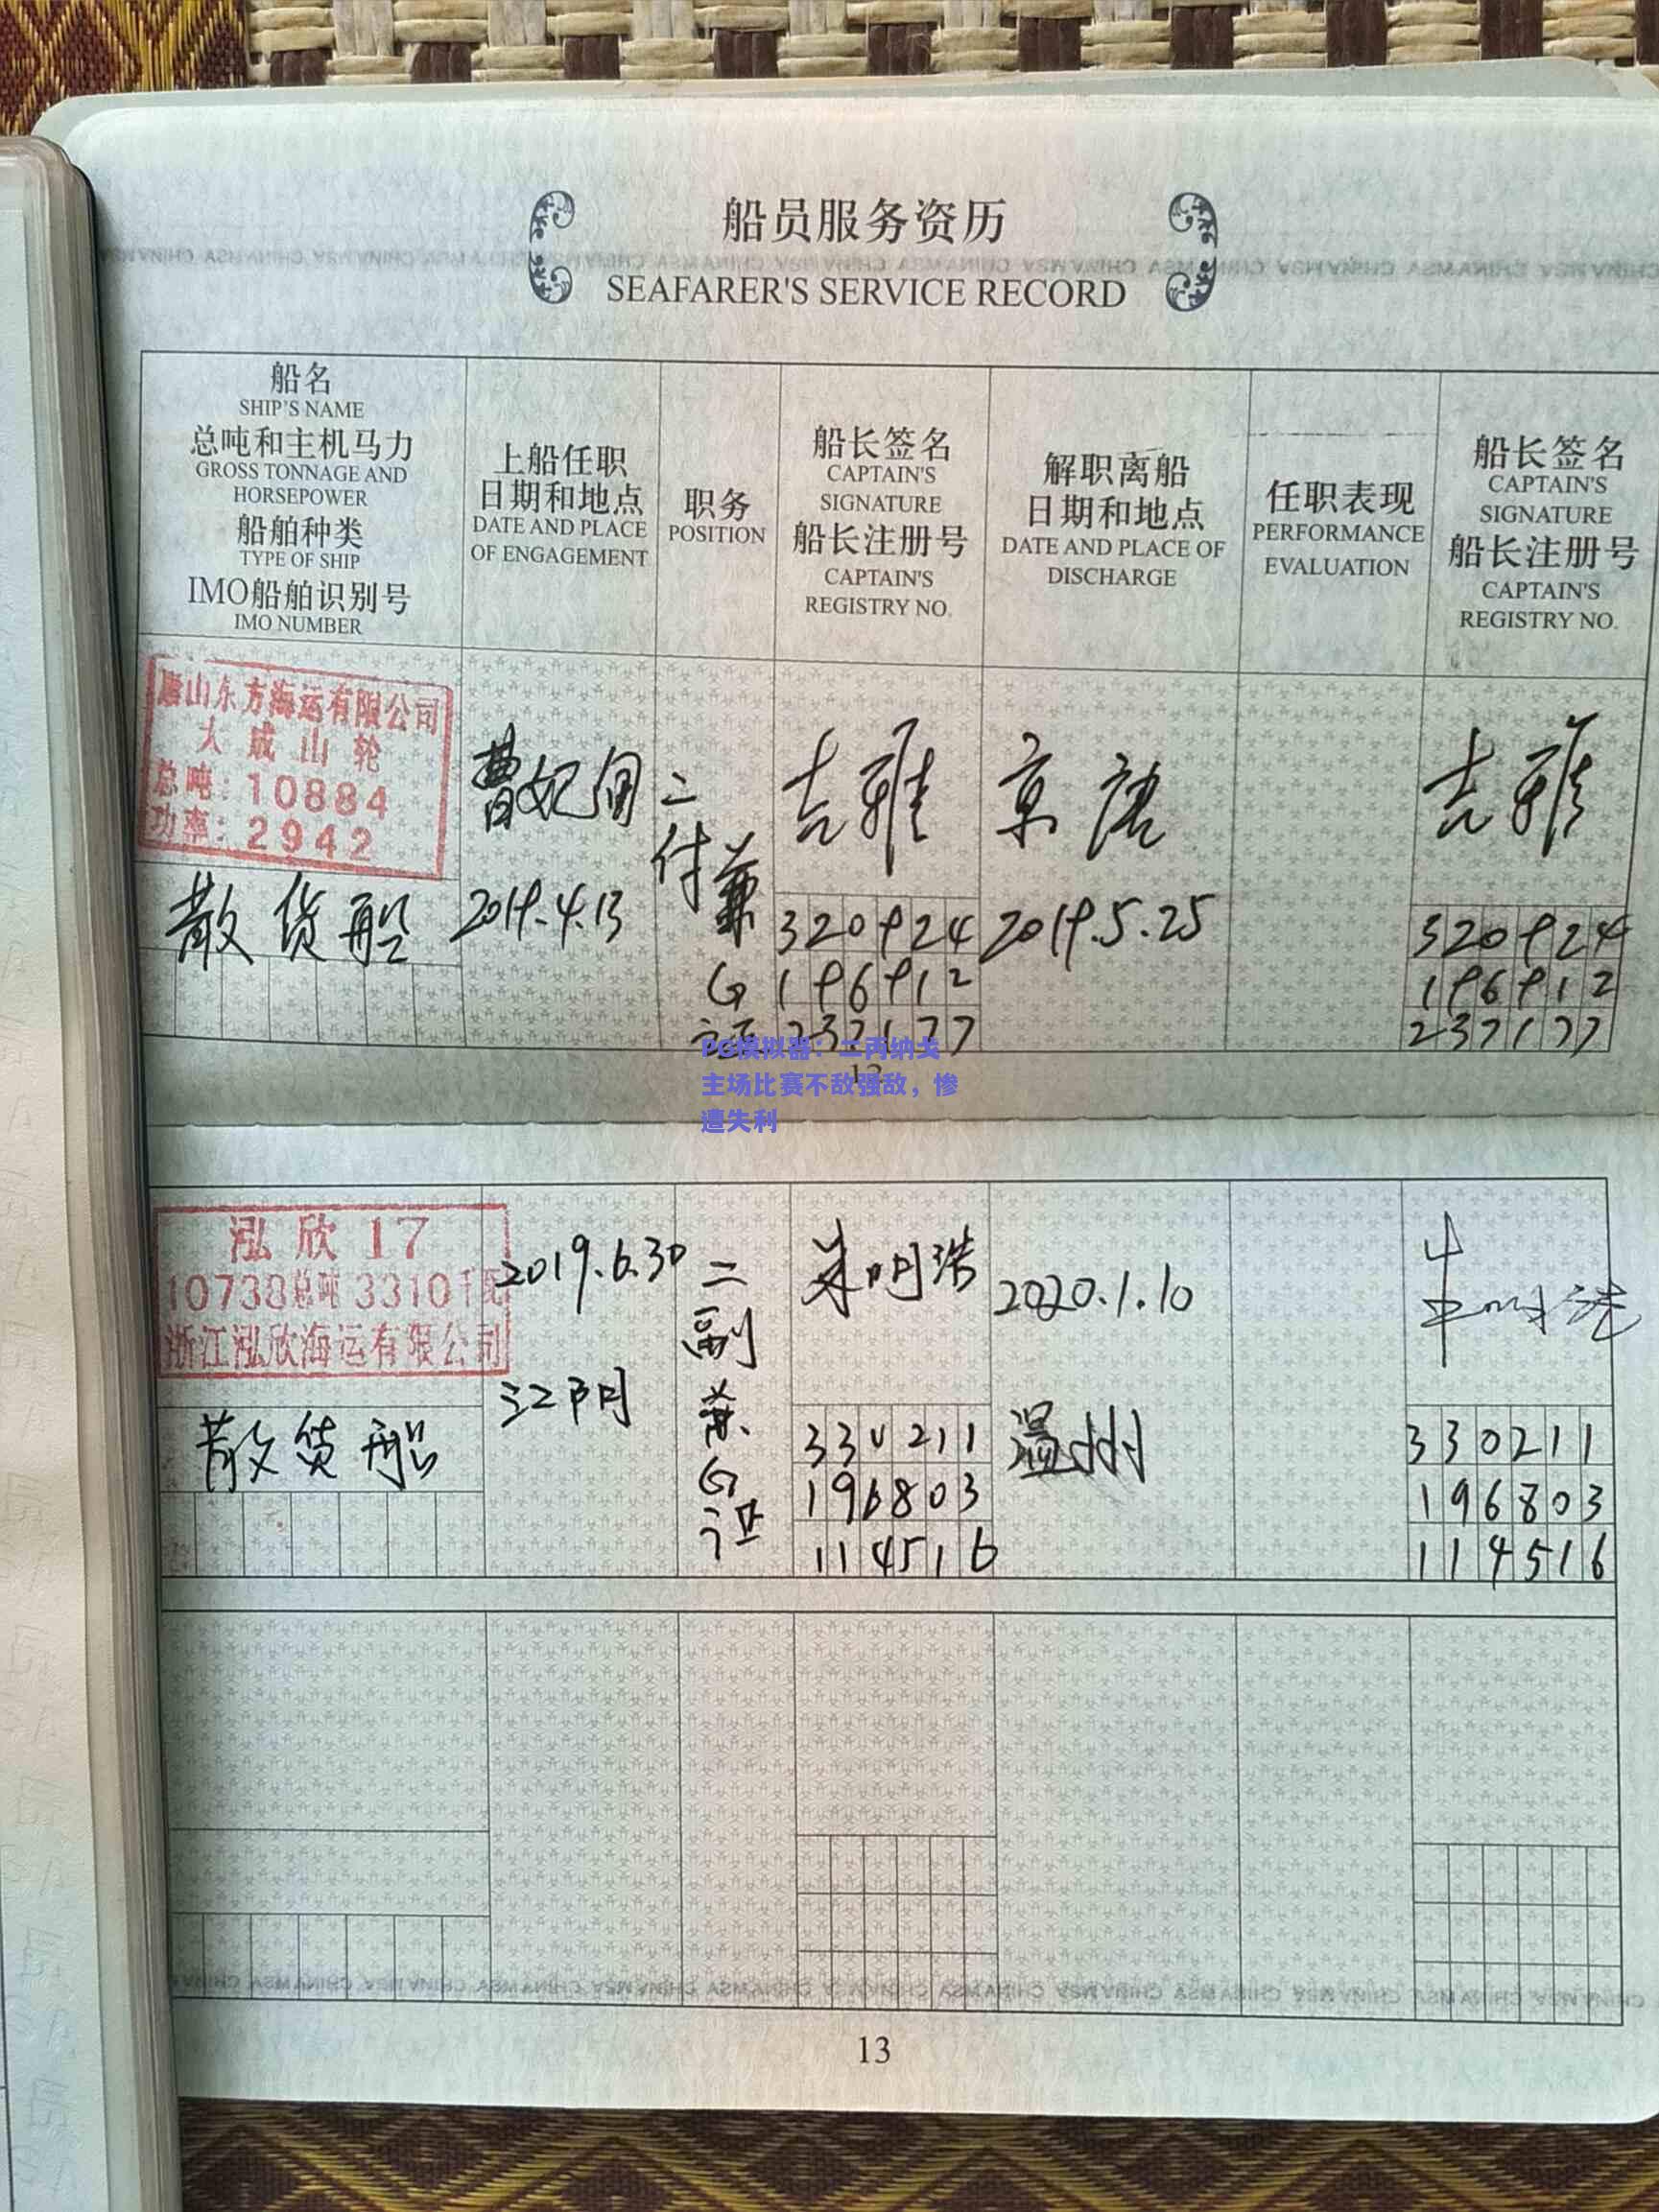 船员服务资历
SEAFARER'S SERVICE RECORD
船名
SHIP'S NAME
总吨和主机马力
GROSS TONNAGE AND
HORSEPOWER
船舶种类
TYPE OF SHIP
IMO船舶识别号
IMO NUMBER
上船任职
日期和地点
DATE AND PLACE
OF ENGAGEMENT
职务
POSITION
船长签名
CAPTAIN'S
SIGNATURE
船长注册号
CAPTAIN'S
REGISTRY NO.
解职离船
日期和地点
DATE AND PLACE OF
DISCHARGE
任职表现
PERFORMANCE
EVALUATION
船长签名
CAPTAIN'S
SIGNATURE
船长注册号
CAPTAIN'S
REGISTRY NO.
唐山东方海运有限公司
大成山轮
总吨:10884
功率:2942
散货船
曹妃甸
2019.4.13
二
付兼
G
证
吉雅
320924
196912
237177
京唐
2019.5.25
吉雅
320924
196912
237177
12
PG模拟器：二丙纳戈
主场比赛不敌强敌，惨
遭失利
泓欣17
10738总吨 3310千瓦
浙江泓欣海运有限公司
散货船
2019.6.30
江阴
二
副
兼
G
证
朱明浩
330211
196803
114516
2020.1.10
温州
330211
196803
114516
13